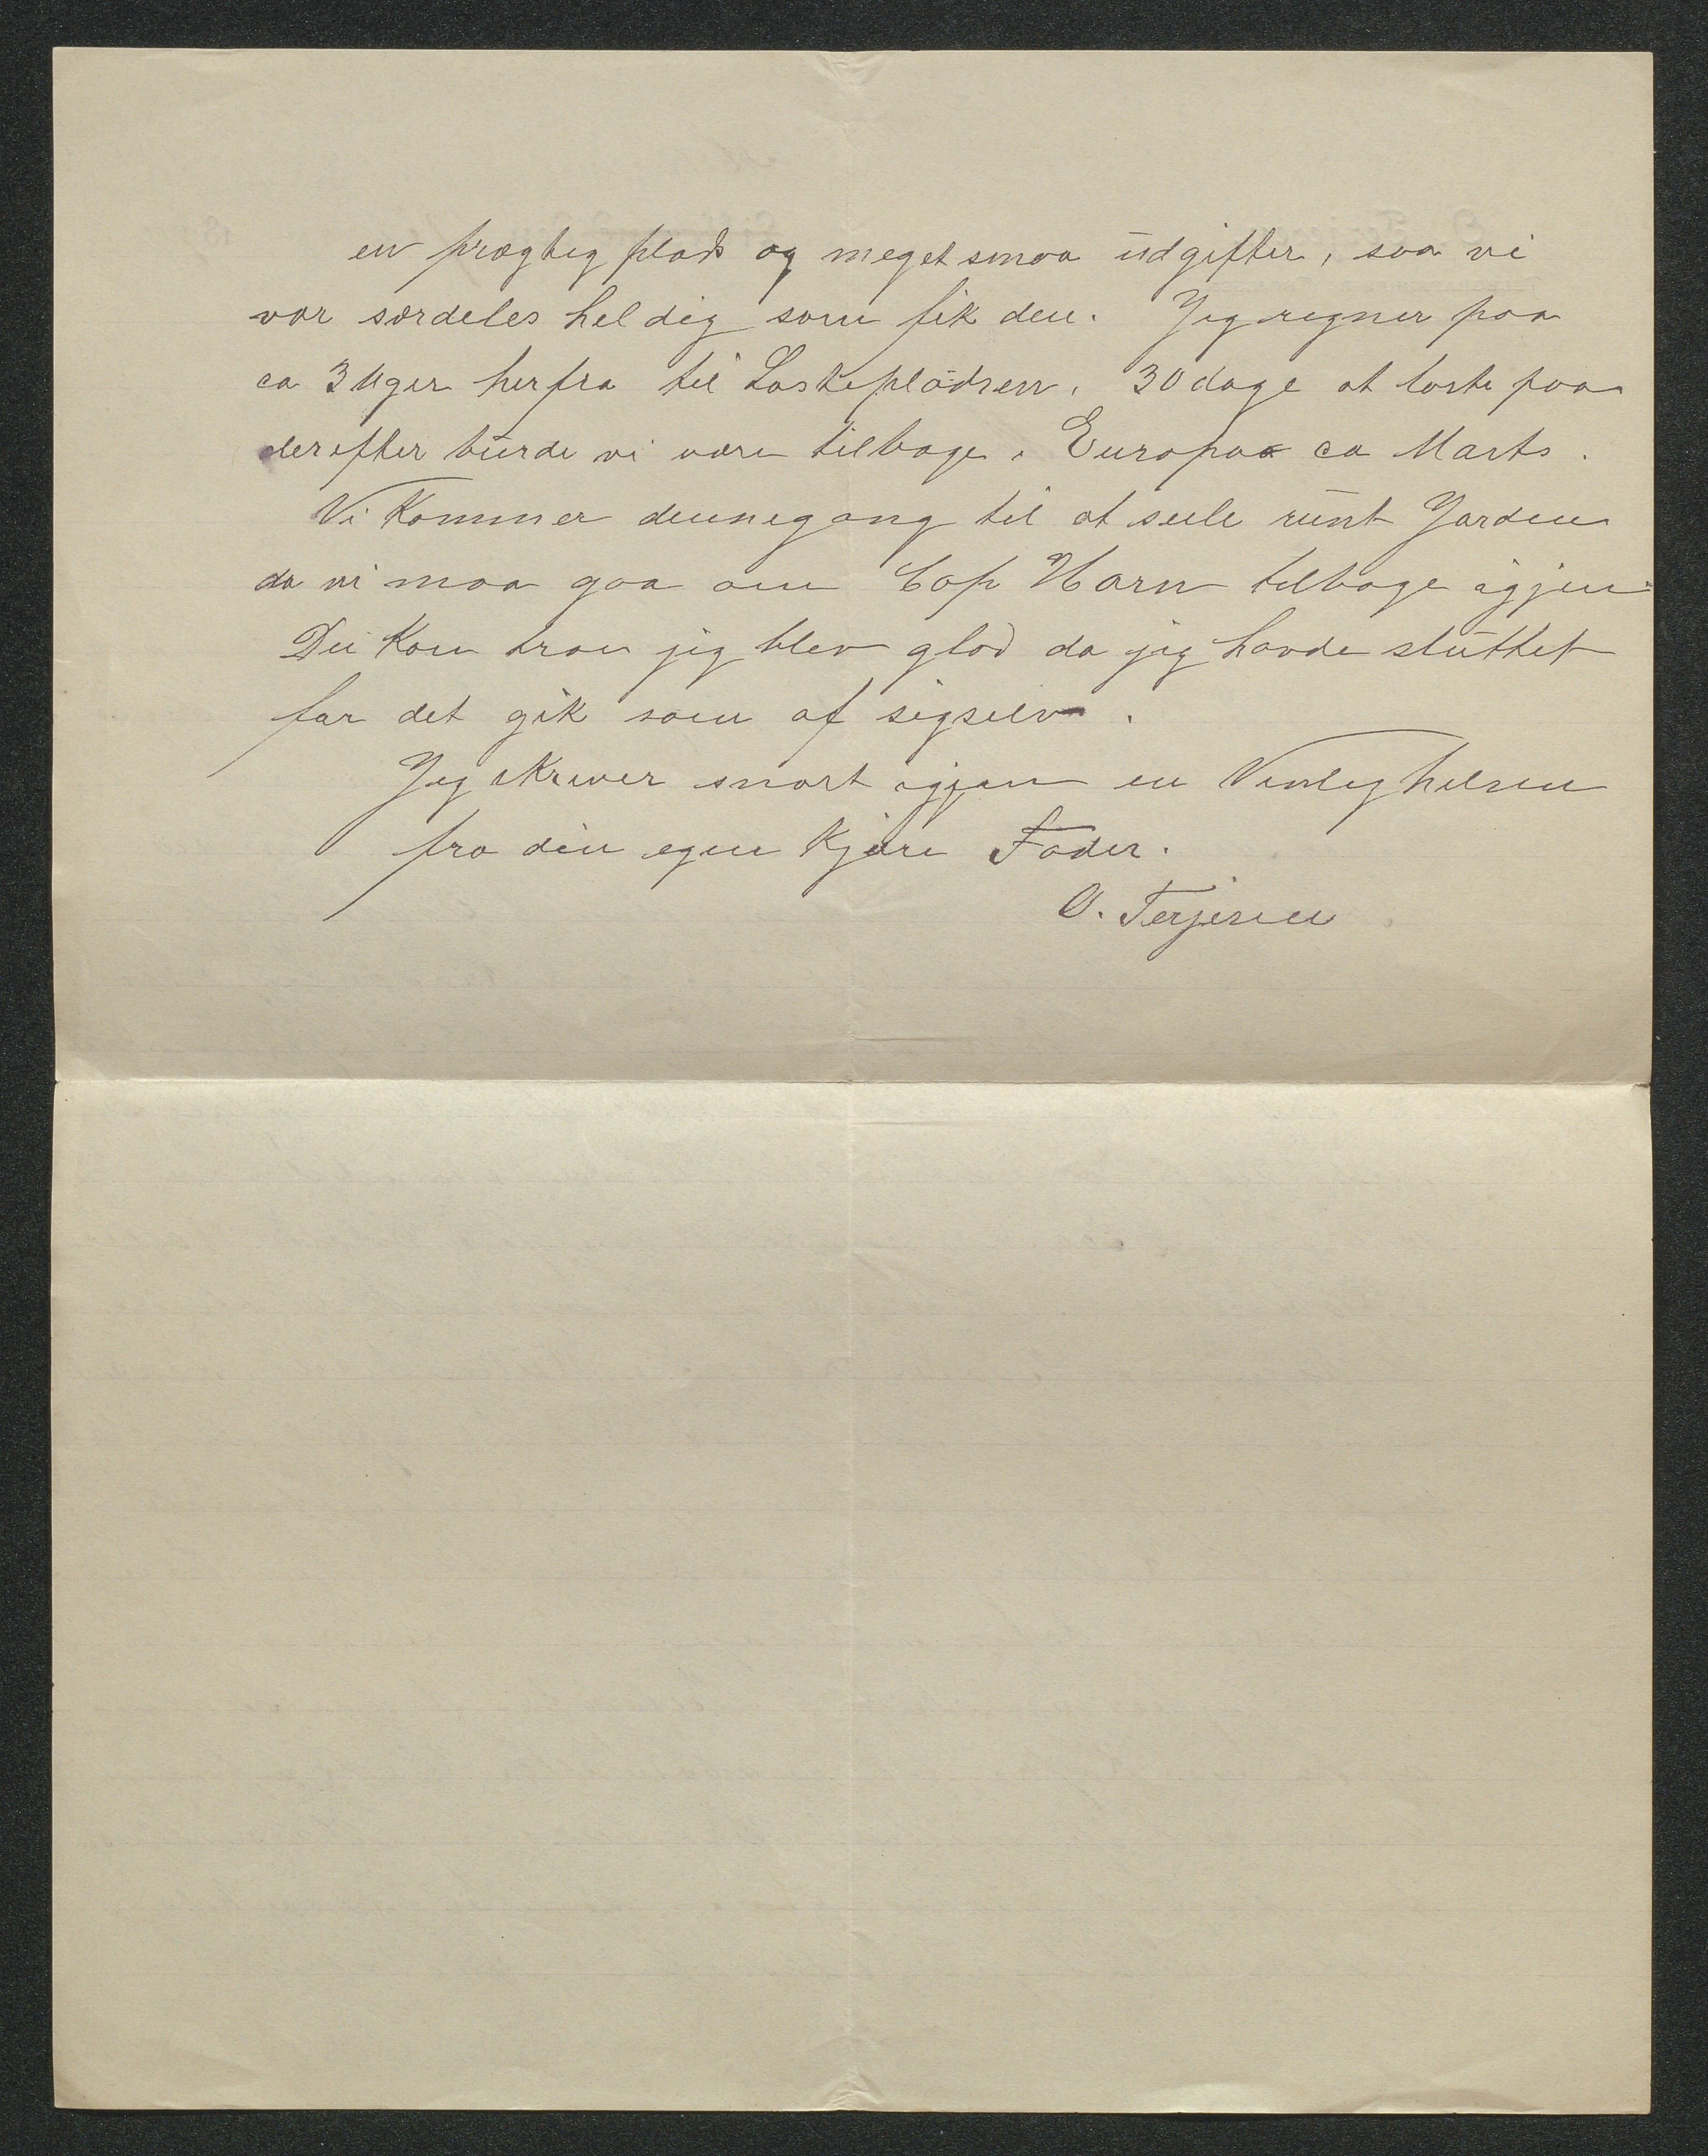 en prægtig plads og meget smaa udgifter, saa vi
var særdeles heldig som fik den. Jeg regner paa
ca 3 Uger herfra til Lasteplädsen, 30 dage at laste paa
derefter burde vi være tilbage i Europa ca Marts.
Vi kommer dennegang til at seile runt Jorden
da vi maa gaa om Cap Horn tilbage igjen
Du kan tro jeg blev glad da jeg havde sluttet
for det gik som af sigselv.
Jeg skriver snart igjen en Venlig hilsen
fra din egen kjære Fader.
O. Terjesen